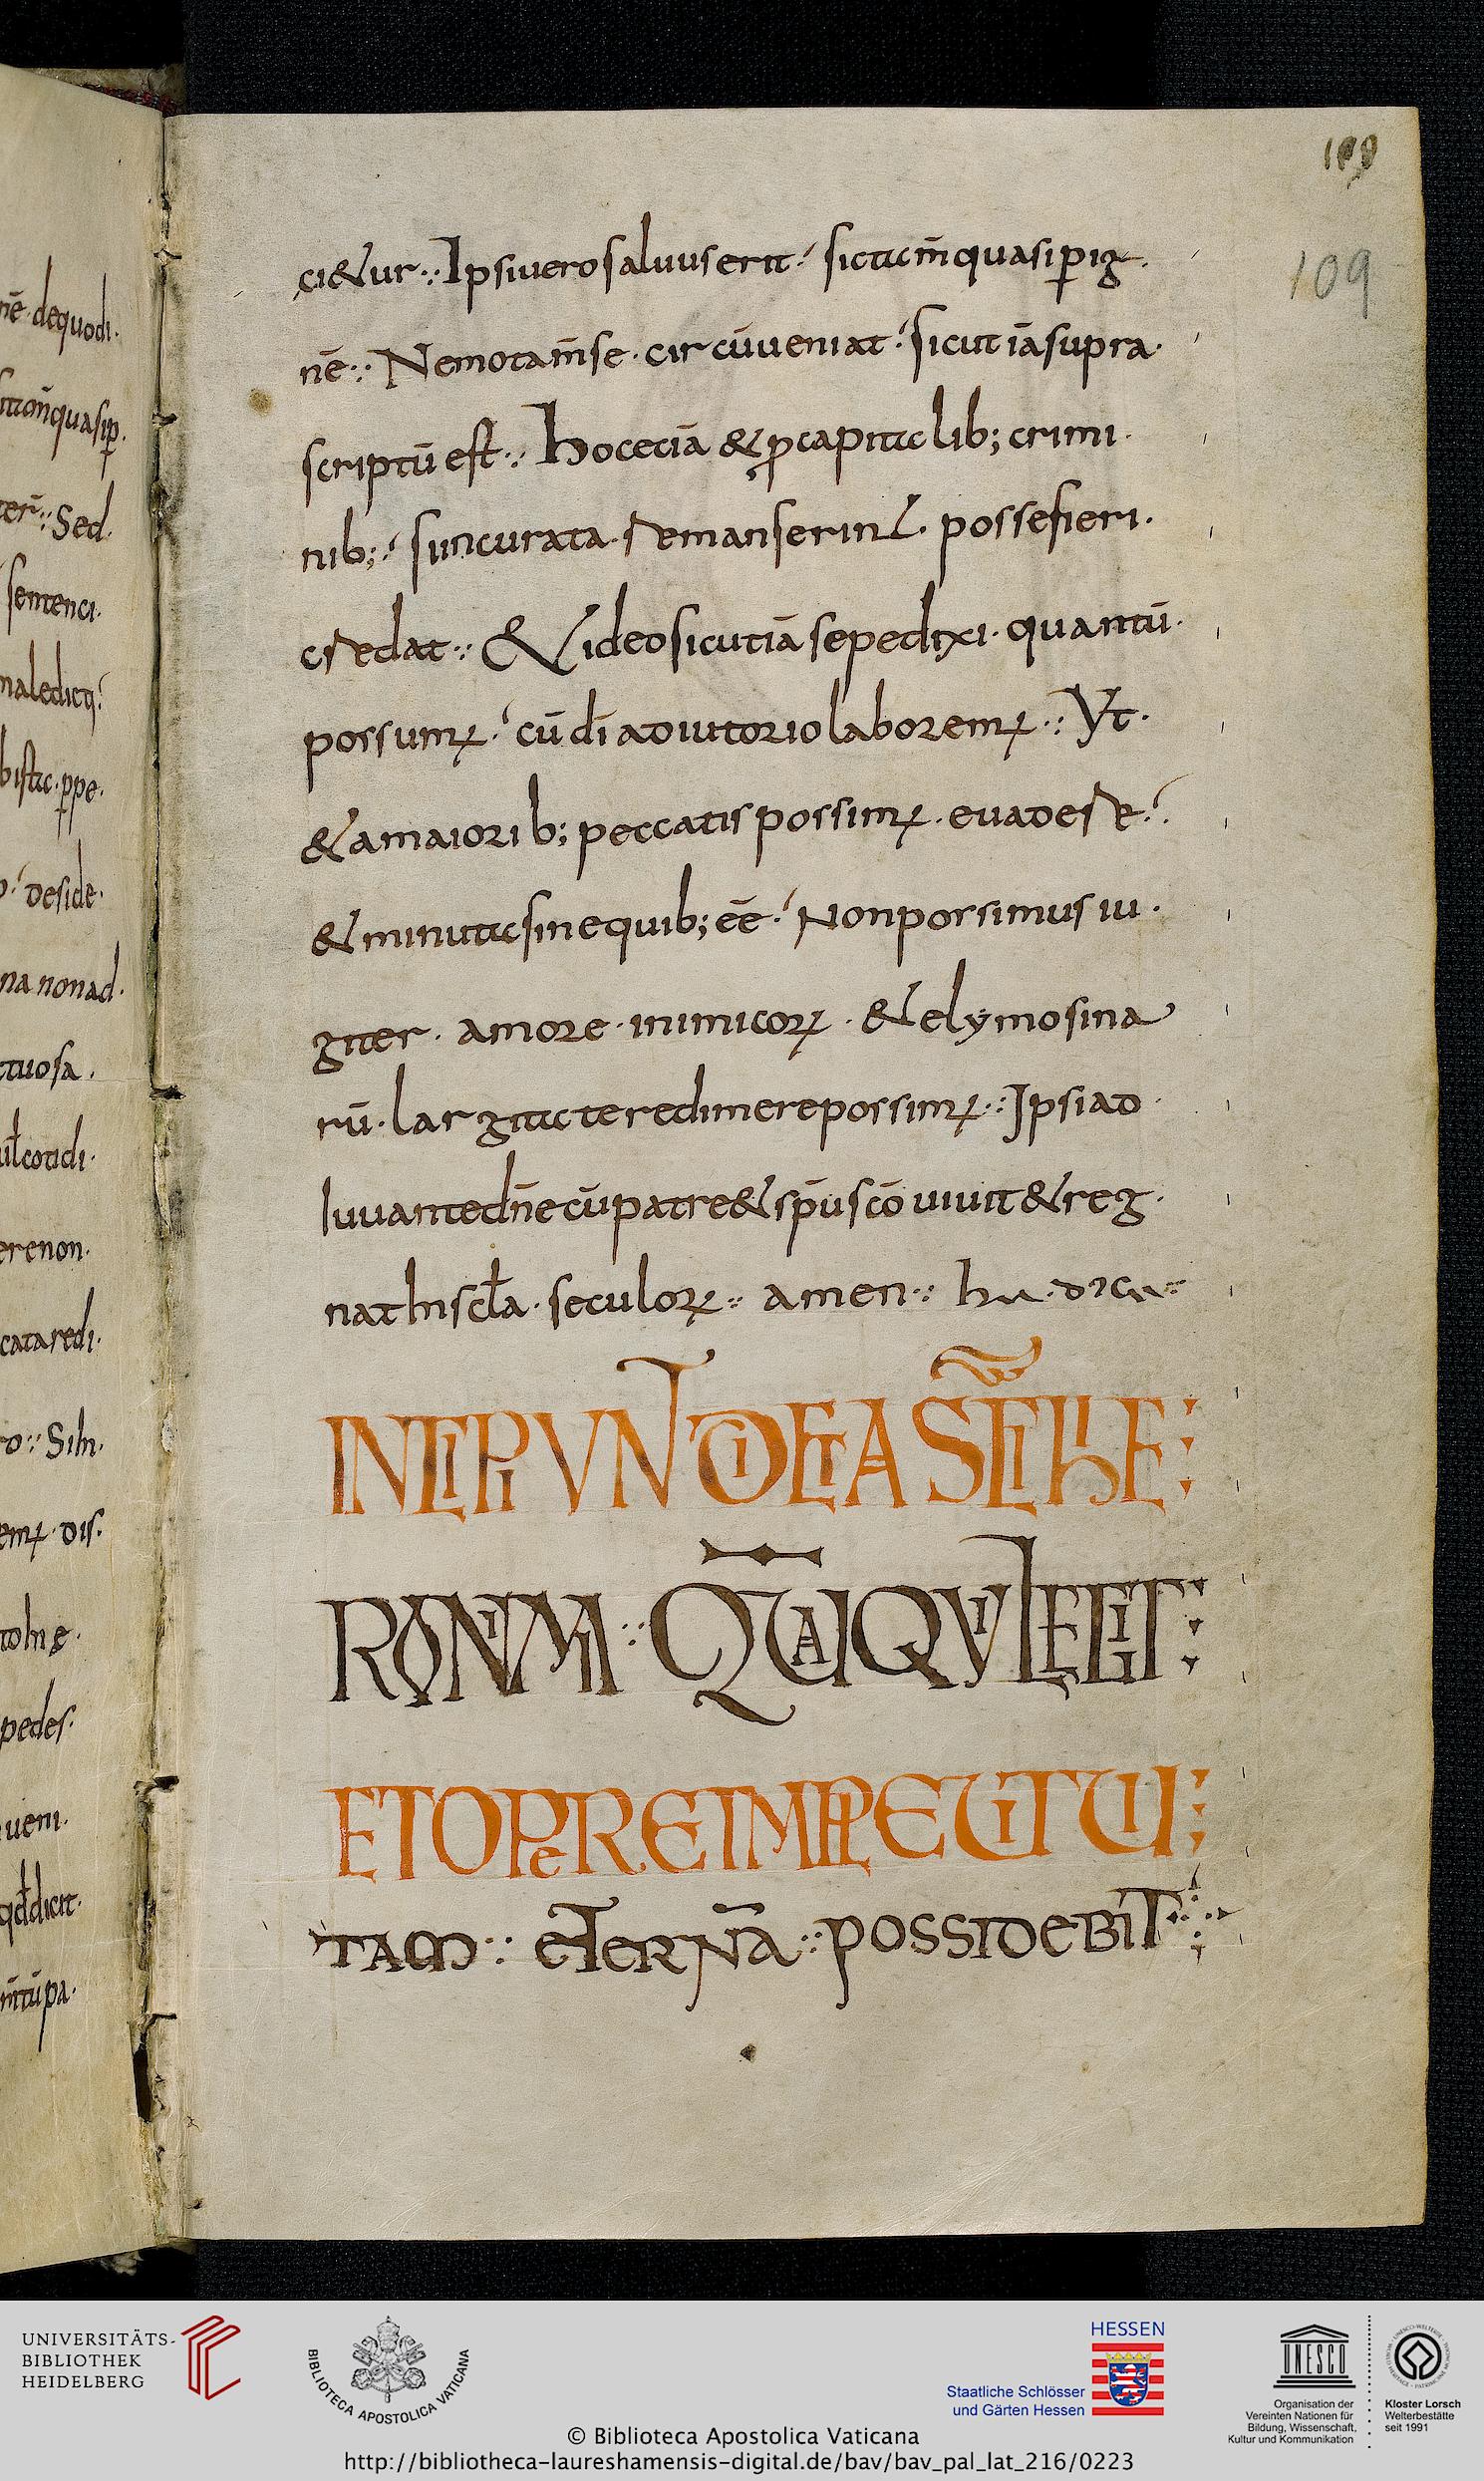 nē dequodi.
Sed.
sentenci.
maledicti
deside.
na nonad.
tuosa.
cotidi.
erenon.
cataredi.
ro :· Si in.
em; dis.
pedes.
ueni.
dicit.
100
109
ci&ur :· Ipsiuerosaluuserit sic ut cm̄quasi p ig.
nē :· Nemotam̄se · circūueniat sicut iāsupra ·
scriptū est :· hocetiā & p capitalib; crimi ·
nib; siincurata · remanserint · possefieri ·
credat :· & ideosicutiāsepedixi · quantū ·
possum; cū dī adiutoriolaborem; :· Vt ·
& amaiorib; peccatis possim; · euadere
& minutis sinequib; ēē · Nonpossimus iu ·
giter · amore · inimicor; · & elymosina
rū · largitate redimerepossim; :· Ipsiad ·
iuuantedn̄e cūpatre& sp̄usc̄o uiuit& reg ·
nat inscl̄a · seculor; :· amen :·
INCIPIUNT DICTA SC̄I HIE
RONIMI :· QUIA QUI LEGIT
ET OPERE IMPLEUIT UI
TAM :· eTerNā :· POSSIDEBIT
UNIVERSITÄTS-
BIBLIOTHEK
HEIDELBERG
BIBLIOTECA APOSTOLICA VATICANA
HESSEN
Staatliche Schlösser
und Gärten Hessen
UNESCO
Organisation der
Vereinten Nationen für
Bildung, Wissenschaft,
Kultur und Kommunikation
Kloster Lorsch
Welterbestätte
seit 1991
© Biblioteca Apostolica Vaticana
http://bibliotheca-laureshamensis-digital.de/bav/bav_pal_lat_216/0223